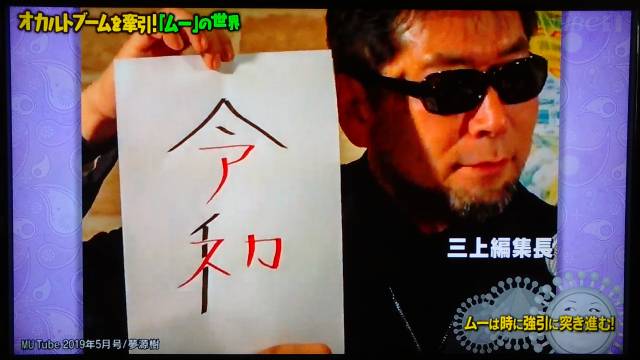 オカルトブームを牽引!「ムー」の世界
令和
三上編集長
ムーは時に強引に突き進む!
MU Tube 2019年5月号/夢源樹